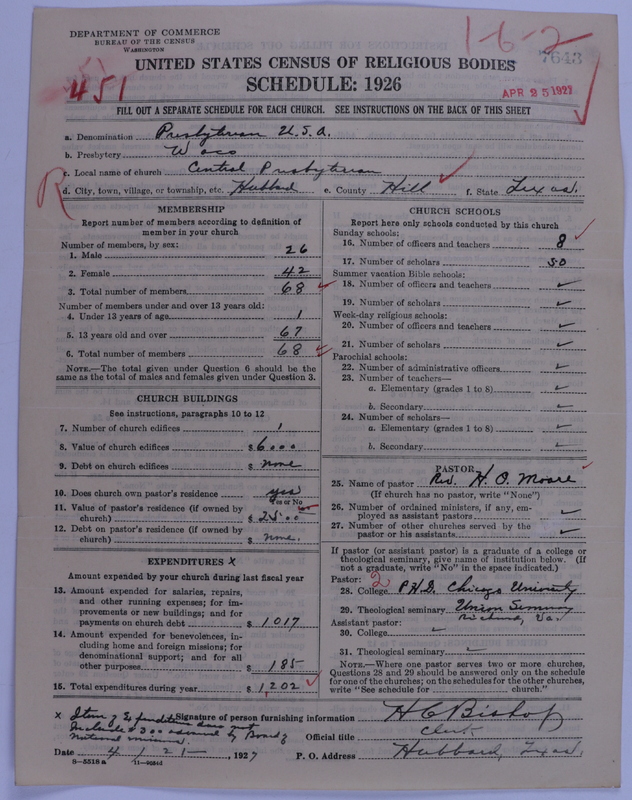 DEPARTMENT OF COMMERCE
BUREAU OF THE CENSUS
WASHINGTON
1-6-2
7643
UNITED STATES CENSUS OF RELIGIOUS BODIES
SCHEDULE: 1926
451
APR 25 1927
FILL OUT A SEPARATE SCHEDULE FOR EACH CHURCH. SEE INSTRUCTIONS ON THE BACK OF THIS SHEET
a. Denomination Presbyterian U.S.A.
b. Presbytery Waco
c. Local name of church Central Presbyterian
R
d. City, town, village, or township, etc. Hubbard e. County Hill f. State Texas.
MEMBERSHIP
Report number of members according to definition of
member in your church
Number of members, by sex:
1. Male 26
2. Female 42
3. Total number of members 68
Number of members under and over 13 years old:
4. Under 13 years of age 1
5. 13 years old and over 67
6. Total number of members 68
NOTE.—The total given under Question 6 should be
same as the total of males and females given under Question 3.
CHURCH BUILDINGS
See instructions, paragraphs 10 to 12
7. Number of church edifices 1
8. Value of church edifices $ 6000
9. Debt on church edifices $ none
10. Does church own pastor's residence yes
Yes or No
11. Value of pastor's residence (if owned by
church) $ 2500
12. Debt on pastor's residence (if owned by
church) $ none.
EXPENDITURES x
Amount expended by your church during last fiscal year
13. Amount expended for salaries, repairs,
and other running expenses; for im-
provements or new buildings; and for
payments on church debt $ 1017
14. Amount expended for benevolences, in-
cluding home and foreign missions; for
denominational support; and for all
other purposes $ 185
15. Total expenditures during year $ 1,202
CHURCH SCHOOLS
Report here only schools conducted by this church
Sunday schools:
16. Number of officers and teachers 8
17. Number of scholars 50
Summer vacation Bible schools:
18. Number of officers and teachers
19. Number of scholars
Week-day religious schools:
20. Number of officers and teachers
21. Number of scholars
Parochial schools:
22. Number of administrative officers
23. Number of teachers—
a. Elementary (grades 1 to 8)
b. Secondary
24. Number of scholars—
a. Elementary (grades 1 to 8)
b. Secondary
PASTOR
25. Name of pastor Rev. H. O. Moore
(If church has no pastor, write "None")
26. Number of ordained ministers, if any, em-
ployed as assistant pastors
27. Number of other churches served by the
pastor or his assistants
If pastor (or assistant pastor) is a graduate of a college or
theological seminary, give name of institution below. (If
not a graduate, write "No" in the space indicated.)
Pastor: 2
28. College P.H.D. Chicago University
29. Theological seminary Union Seminary
Richmond, Va.
Assistant pastor:
30. College
31. Theological seminary
NOTE.—Where one pastor serves two or more churches,
Questions 28 and 29 should be answered only on the schedule
for one of the churches; on the schedules for the other churches,
write "See schedule for church."
x Item of Expenditure does not
include $300 advanced by Board of
National missions.
Signature of person furnishing information H C Bishop
Official title Clerk
Date 4/21, 1927 P. O. Address Hubbard, Texas.
8-5518 a